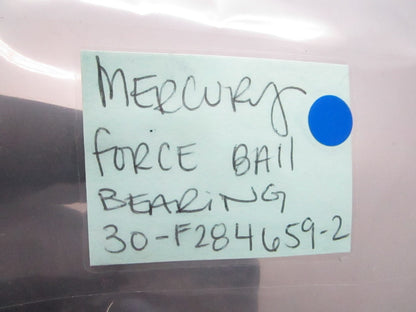 MERCURY
FORCE BALL
BEARING
30-F284659-2